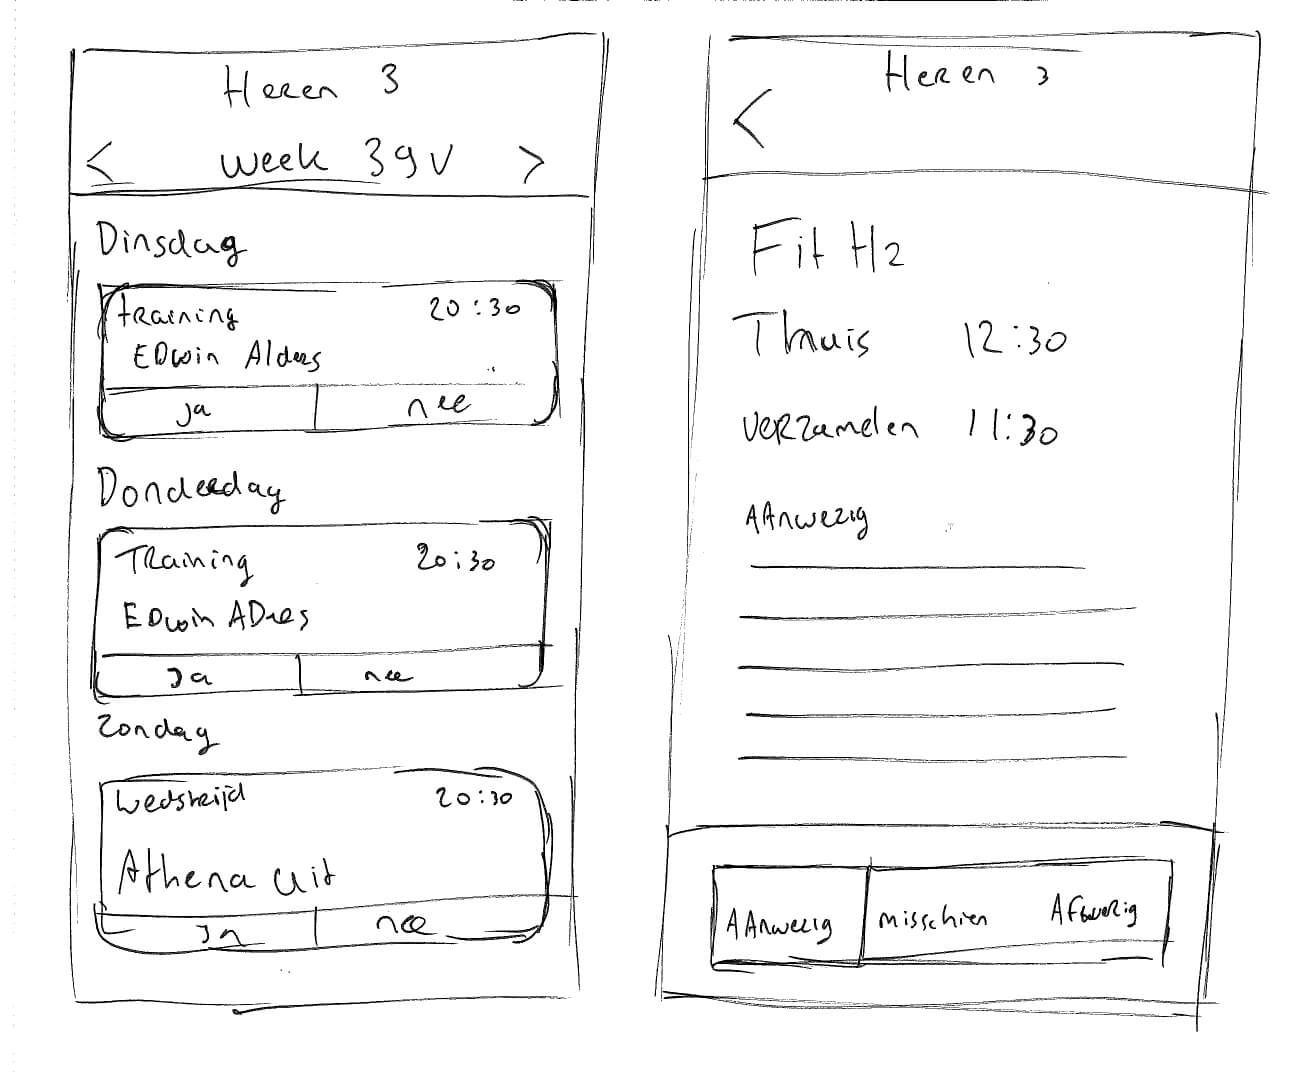 Heren 3
< week 39 v >
Dinsdag
training 20:30
EDwin Alders
ja nee
Donderdag
Training 20:30
EDwin ADres
Ja nee
Zondag
Wedstrijd 20:30
Athena uit
Ja nee
Heren 3
<
Fit H2
Thuis 12:30
verzamelen 11:30
AAnwezig
AAnwezig misschien AFwezig